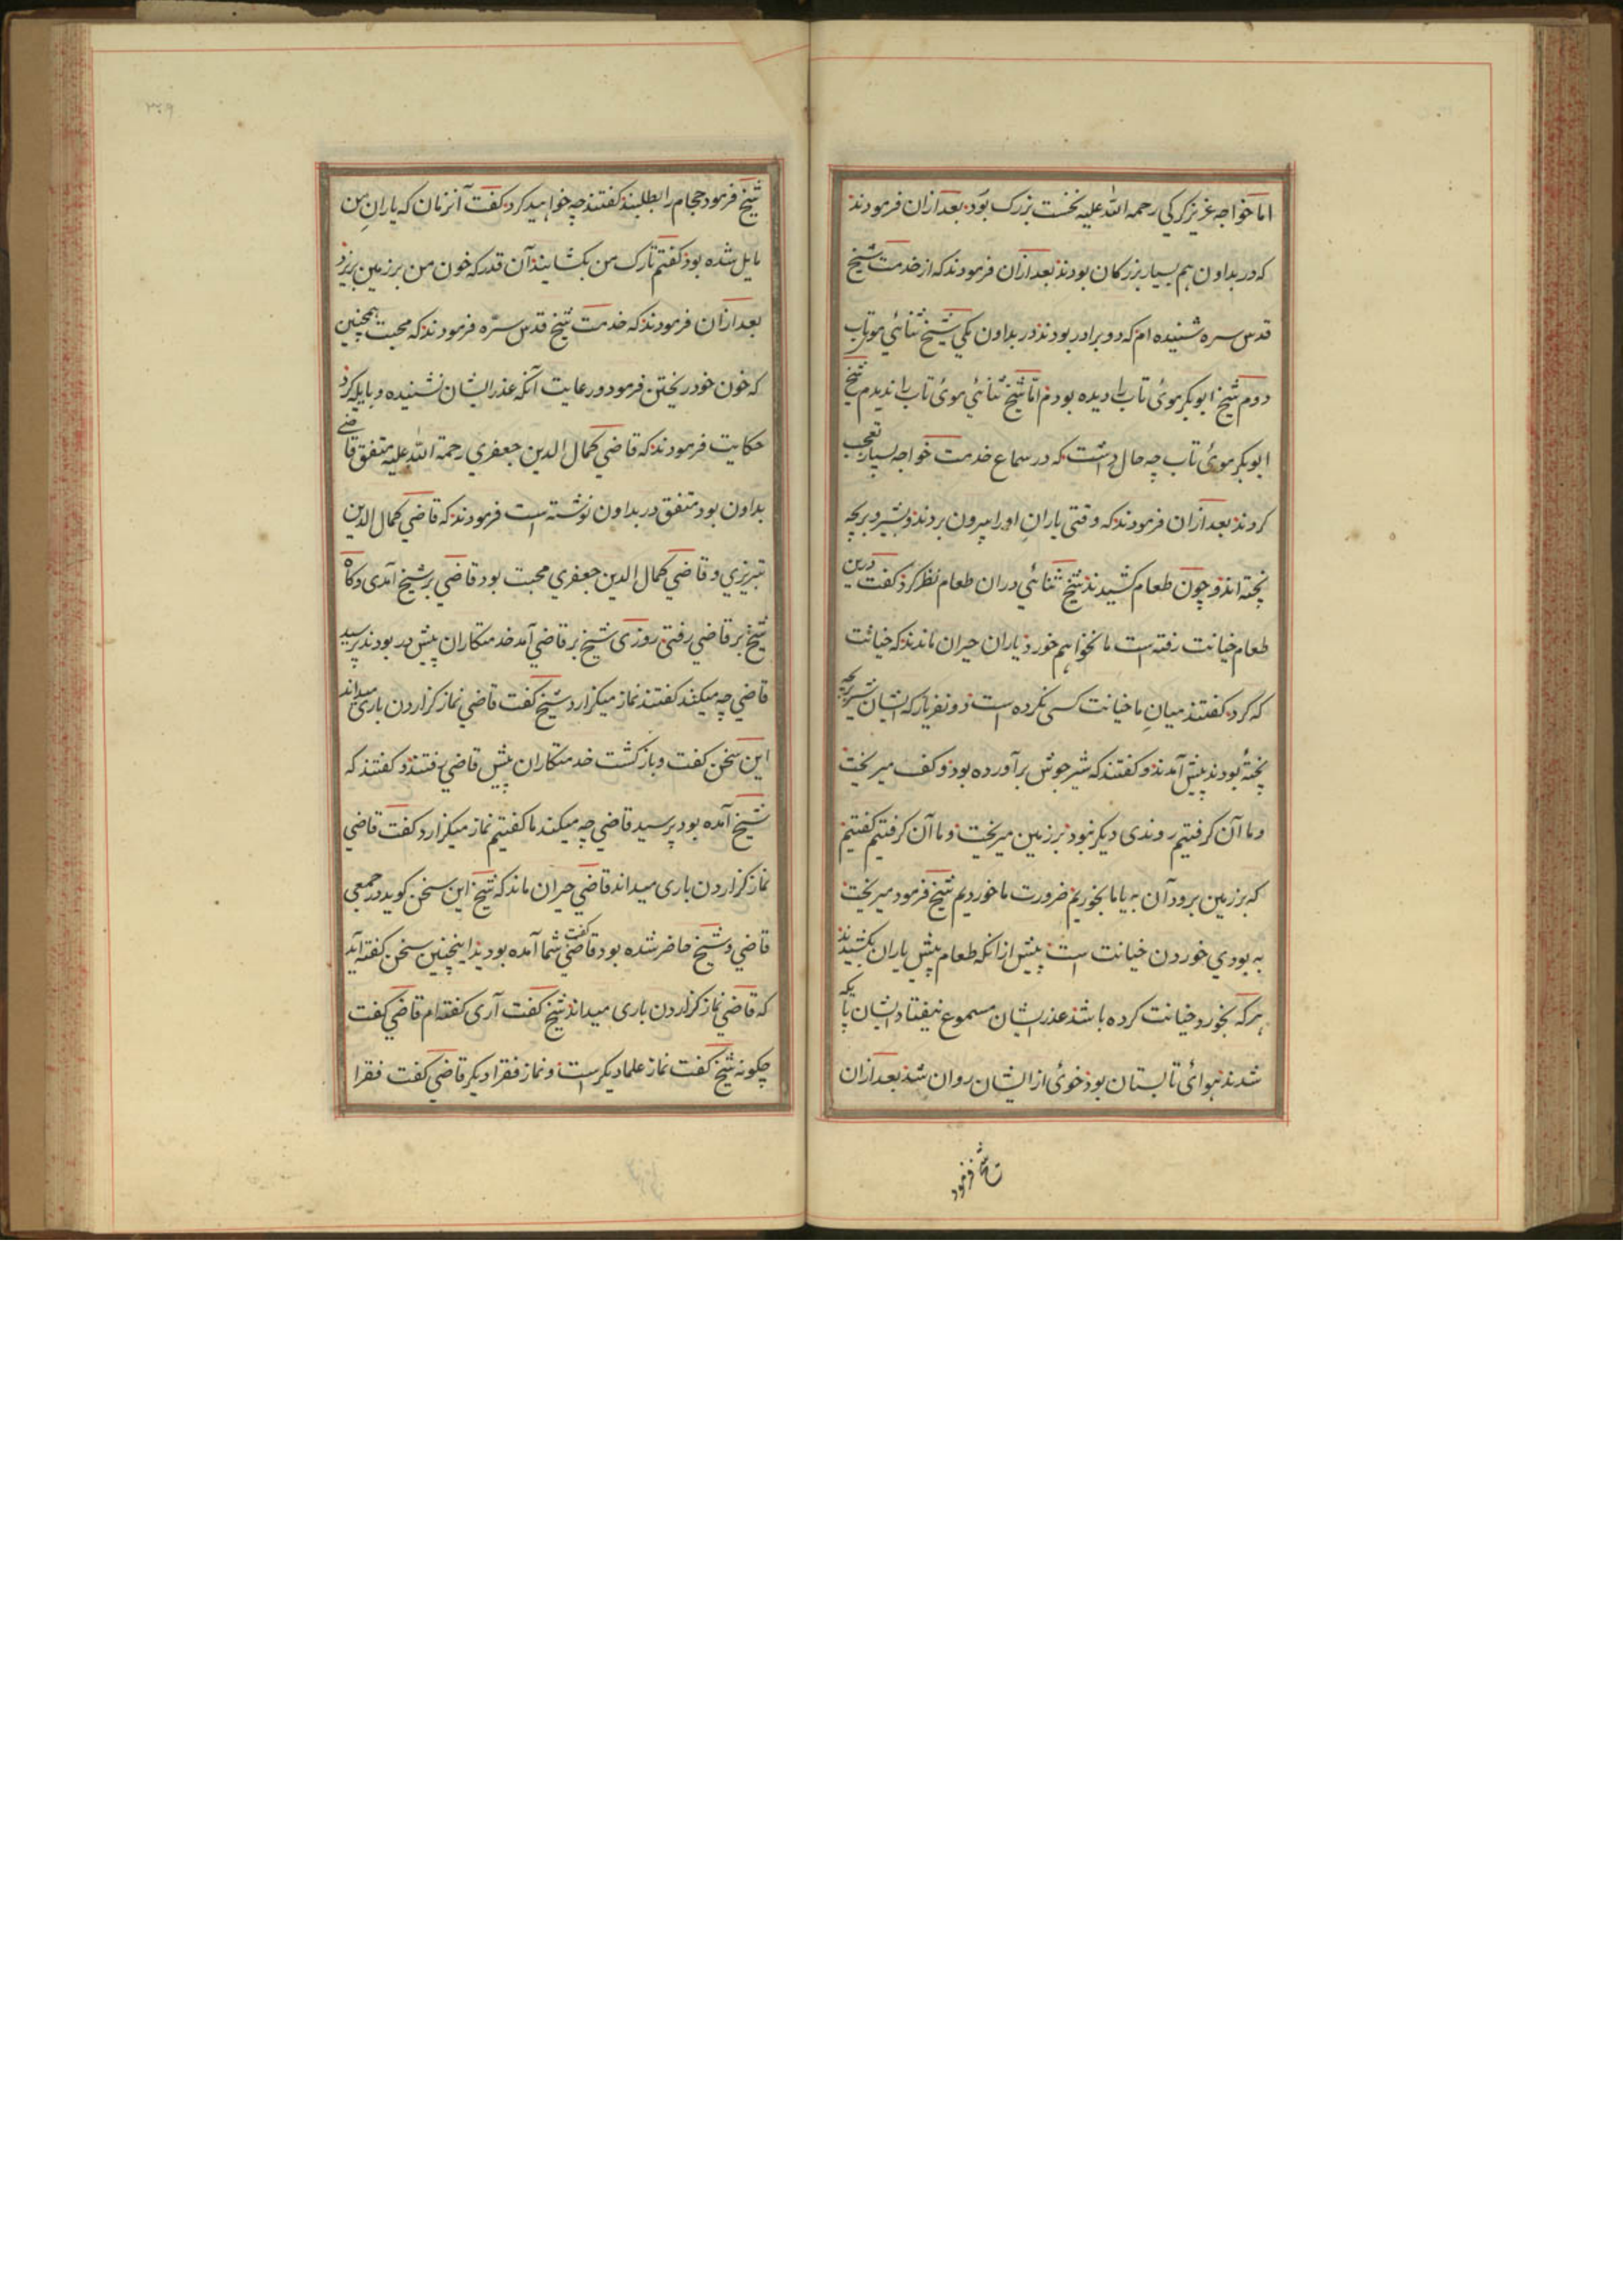 اما خواجه عزیز کرکی رحمه الله علیه نخست بزرک بود بعد ازان فرمودند
که در بداون هم بسیار بزرکان بودند بعد ازان فرمودند که از خدمت شیخ
قدس سره شنیده ام که دو برادر بودند در بداون یکی شیخ شنائی موتاب
دوم شیخ ابوبکر موئ تاب را دیده بودم اما شیخ شنائی موئ تاب را ندیدم شیخ
ابوبکر موئ تاب چه حال داشت که در سماع خدمت خواجه بسیار تعجب
کردند بعد ازان فرمودند که وقتی یارانِ او را بیرون بردند و شیر و برنجه
پخته اند و چون طعام کشیدند شیخ شنائی دران طعام نظر کرد کفت درین
طعام خیانت رفته است ما نخواهم خورد یاران حیران ماندند که خیانت
که کرد کفتند میانِ ما خیانت کسی نکرده است دو نفر یار که ایشان شیر برنجه
پخته بودند پیش آمدند و کفتند که شیر جوش برآورده بود و کف میریخت
و ما آن کرفتیم روندی دیکر نبود بر زمین میریخت و ما آن کرفتیم کفتیم
که بر زمین برود آن به یا ما بخوریم ضرورت ما خوردیم شیخ فرمود میریخت
به بودی خوردن خیانت است پیش ازانکه طعام پیش یاران بکشیدند
هرکه بخورد خیانت کرده باشد عذر ایشان مسموع نیفتاد ایشان پایکه
شدند هوائی تابستان بود خوئ از ایشان روان شد بعد ازان
شیخ فرمود
۳۴۹
شیخ فرمود حجام را بطلبند کفتند چه خواهید کرد کفت آنزمان که یارانِ من
مایل شده بود کفتم تارک من بکشایند آن قدر که خون من بر زمین بریزد
بعد ازان فرمودند که خدمت شیخ قدس سرّه فرمودند که محبت همچنین
که خون خود ریختن فرمود و رعایت آنکه عذر ایشان نشنیده و پایله کرد
حکایت فرمودند که قاضی کمال الدین جعفری رحمة الله علیه متفق قاضی
بداون بود متفق در بداون نوشته است فرمودند که قاضی کمال الدین
تبریزی و قاضی کمال الدین جعفری محبت بود قاضی بر شیخ آمدی و کاه
شیخ بر قاضی رفتی روزی شیخ بر قاضی آمد خدمتکاران پیش در بودند پرسید
قاضی چه میکند کفتند نماز میکزارد شیخ کفت قاضی نماز کزاردن باری میداند
این سخن کفت و باز کشت خدمتکاران پیش قاضی رفتند و کفتند که
شیخ آمده بود پرسید قاضی چه میکند ما کفتیم نماز میکزارد کفت قاضی
نماز کزاردن باری میداند قاضی حیران ماند که شیخ این سخن کوید در جمعی
قاضی و شیخ حاضر شده بود قاضی کفت شما آمده بودید اینچنین سخن کفته اید
که قاضی نماز کزاردن باری میداند شیخ کفت آری کفته ام قاضی کفت
چکونه شیخ کفت نماز علما دیکر است و نماز فقرا دیکر قاضی کفت فقرا